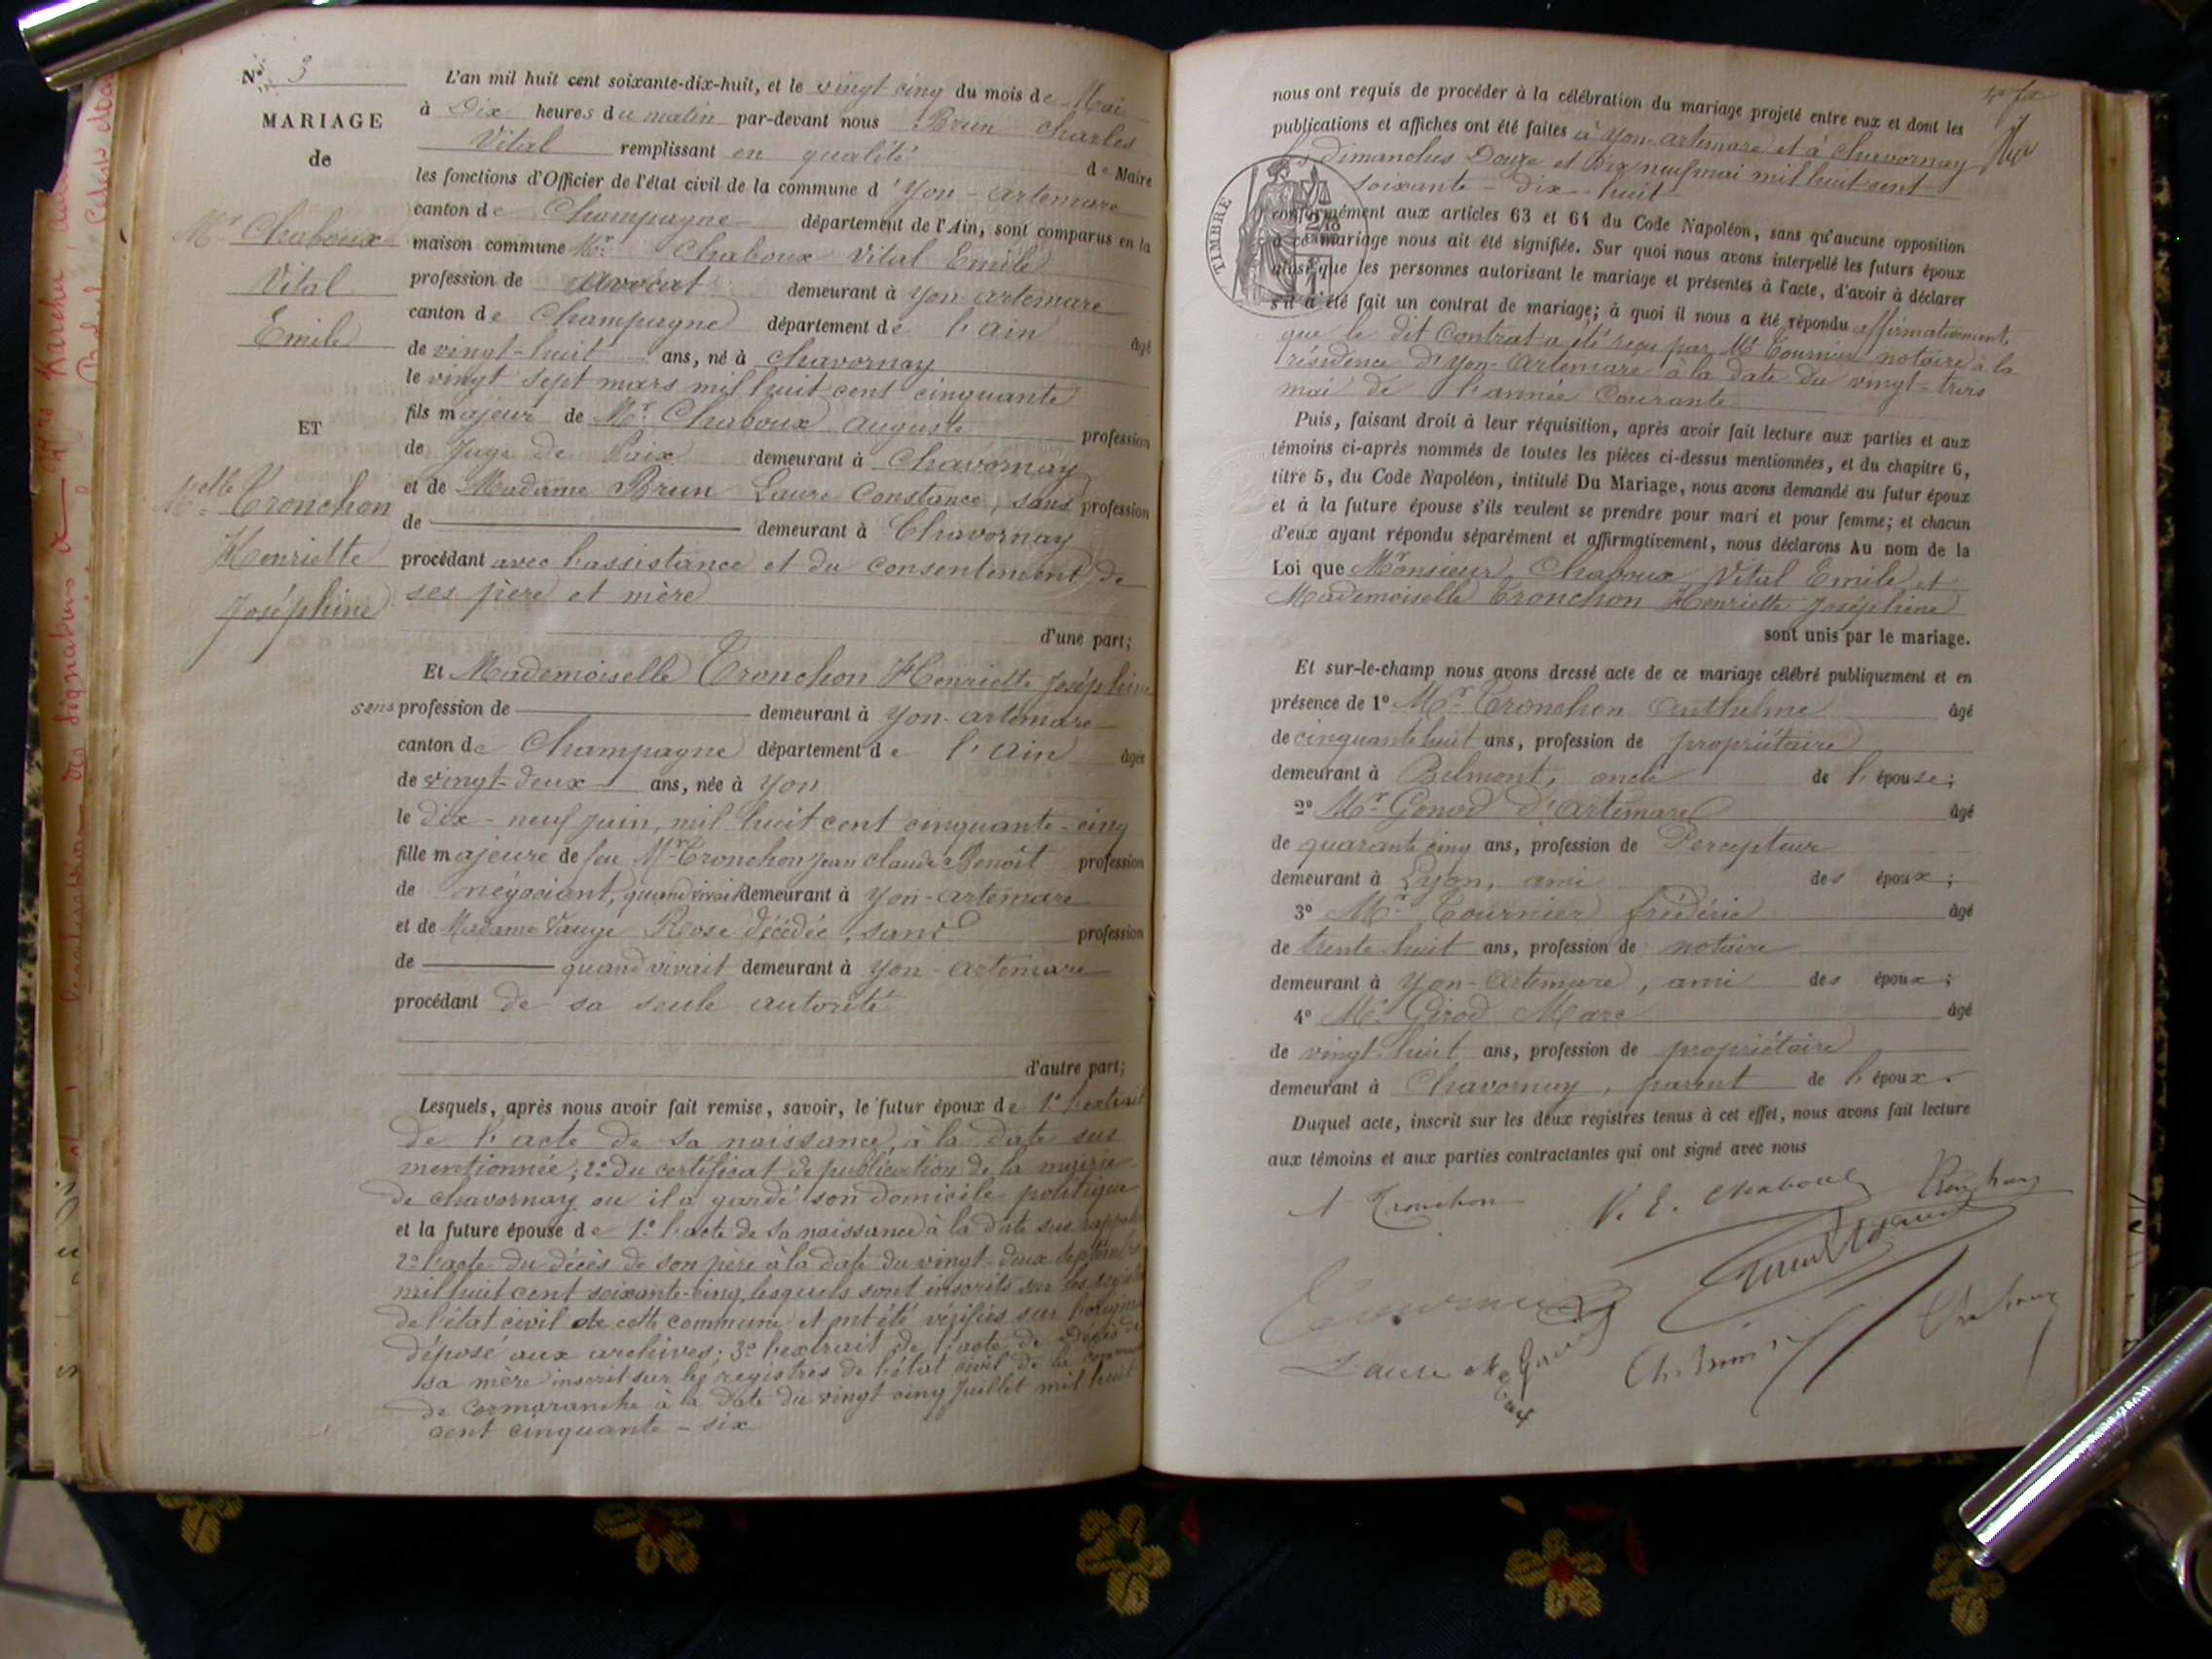 N° 3
MARIAGE
de
Mr Chaboux
Vital
Emile
ET
Melle Tronchon
Henriette
Joséphine
L'an mil huit cent soixante-dix-huit, et le vingt cinq du mois de Mai
à Dix heures du matin par-devant nous Brun Charles
Vital remplissant en qualité de Maire
les fonctions d'Officier de l'état civil de la commune d'Yon-Artemare
canton de Champagne département de l'Ain, sont comparus en la
maison commune Mr. Chaboux Vital Emile
profession de avocat demeurant à Yon-Artemare
canton de Champagne département de l'Ain âgé
de vingt-huit ans, né à Chavornay
le vingt sept mars mil huit cent cinquante
fils majeur de Mr. Chaboux Auguste profession
de Juge de Paix demeurant à Chavornay
et de Madame Brun Laure Constance, sans profession
de demeurant à Chavornay
procédant avec l'assistance et du consentement de
ses père et mère
d'une part;
Et Mademoiselle Tronchon Henriette Joséphine
sans profession de demeurant à Yon-Artemare
canton de Champagne département de l'Ain âgée
de vingt-deux ans, née à Yon
le dix-neuf juin, mil huit cent cinquante-cinq
fille majeure de feu Mr Tronchon Jean Claude Benoît profession
de négociant, quand vivait demeurant à Yon-Artemare
et de Madame Vauge Rose décédée, sans profession
de quand vivait demeurant à Yon-Artemare
procédant de sa seule autorité
d'autre part;
Lesquels, après nous avoir fait remise, savoir, le futur époux de 1° l'extrait
de l'acte de sa naissance, à la date sus
mentionnée; 2° du certificat de publication de la mairie
de Chavornay ou il a gardé son domicile politique
et la future épouse de 1° l'acte de sa naissance à la date sus
2° l'acte du décès de son père à la date du vingt-deux septembre
mil huit cent soixante-cinq, lesquels sont inscrits sur les
de l'état civil de cette commune et ont été vérifiés sur
déposé aux archives; 3° l'extrait de l'acte de décès de
sa mère inscrit sur les registres de l'état civil de la commune
de Cormaranche à la date du vingt cinq Juillet mil huit
cent cinquante-six
nous ont requis de procéder à la célébration du mariage projeté entre eux et dont les
publications et affiches ont été faites à Yon-Artemare et à Chavornay
les dimanches Douze et Dix neuf mai mil huit cent
soixante-dix-huit
TIMBRE
conformément aux articles 63 et 64 du Code Napoléon, sans qu'aucune opposition
à ce mariage nous ait été signifiée. Sur quoi nous avons interpellé les futurs époux
ainsi que les personnes autorisant le mariage et présentes à l'acte, d'avoir à déclarer
s'il a été fait un contrat de mariage; à quoi il nous a été répondu affirmativement
que le dit Contrat a été reçu par Me Tournier notaire à la
résidence d'Yon-Artemare à la date du vingt-trois
mai de l'année Courante
Puis, faisant droit à leur réquisition, après avoir fait lecture aux parties et aux
témoins ci-après nommés de toutes les pièces ci-dessus mentionnées, et du chapitre 6,
titre 5, du Code Napoléon, intitulé Du Mariage, nous avons demandé au futur époux
et à la future épouse s'ils veulent se prendre pour mari et pour femme; et chacun
d'eux ayant répondu séparément et affirmativement, nous déclarons Au nom de la
Loi que Monsieur Chaboux Vital Emile et
Mademoiselle Tronchon Henriette Joséphine
sont unis par le mariage.
Et sur-le-champ nous avons dressé acte de ce mariage célébré publiquement et en
présence de 1° Mr. Tronchon Anthelme âgé
de cinquante huit ans, profession de propriétaire
demeurant à Belmont, oncle de l'épouse;
2° Mr Gonod d'Artemare âgé
de quarante cinq ans, profession de Percepteur
demeurant à Lyon, ami des époux;
3° Mr Tournier frédéric âgé
de trente huit ans, profession de notaire
demeurant à Yon-Artemare, ami des époux;
4° Mr. Girod Marc âgé
de vingt huit ans, profession de propriétaire
demeurant à Chavornay, parent de l'époux.
Duquel acte, inscrit sur les deux registres tenus à cet effet, nous avons fait lecture
aux témoins et aux parties contractantes qui ont signé avec nous
Tronchon V. E. Chaboux
Tournier
Laure Chaboux Ch. Brun Chaboux